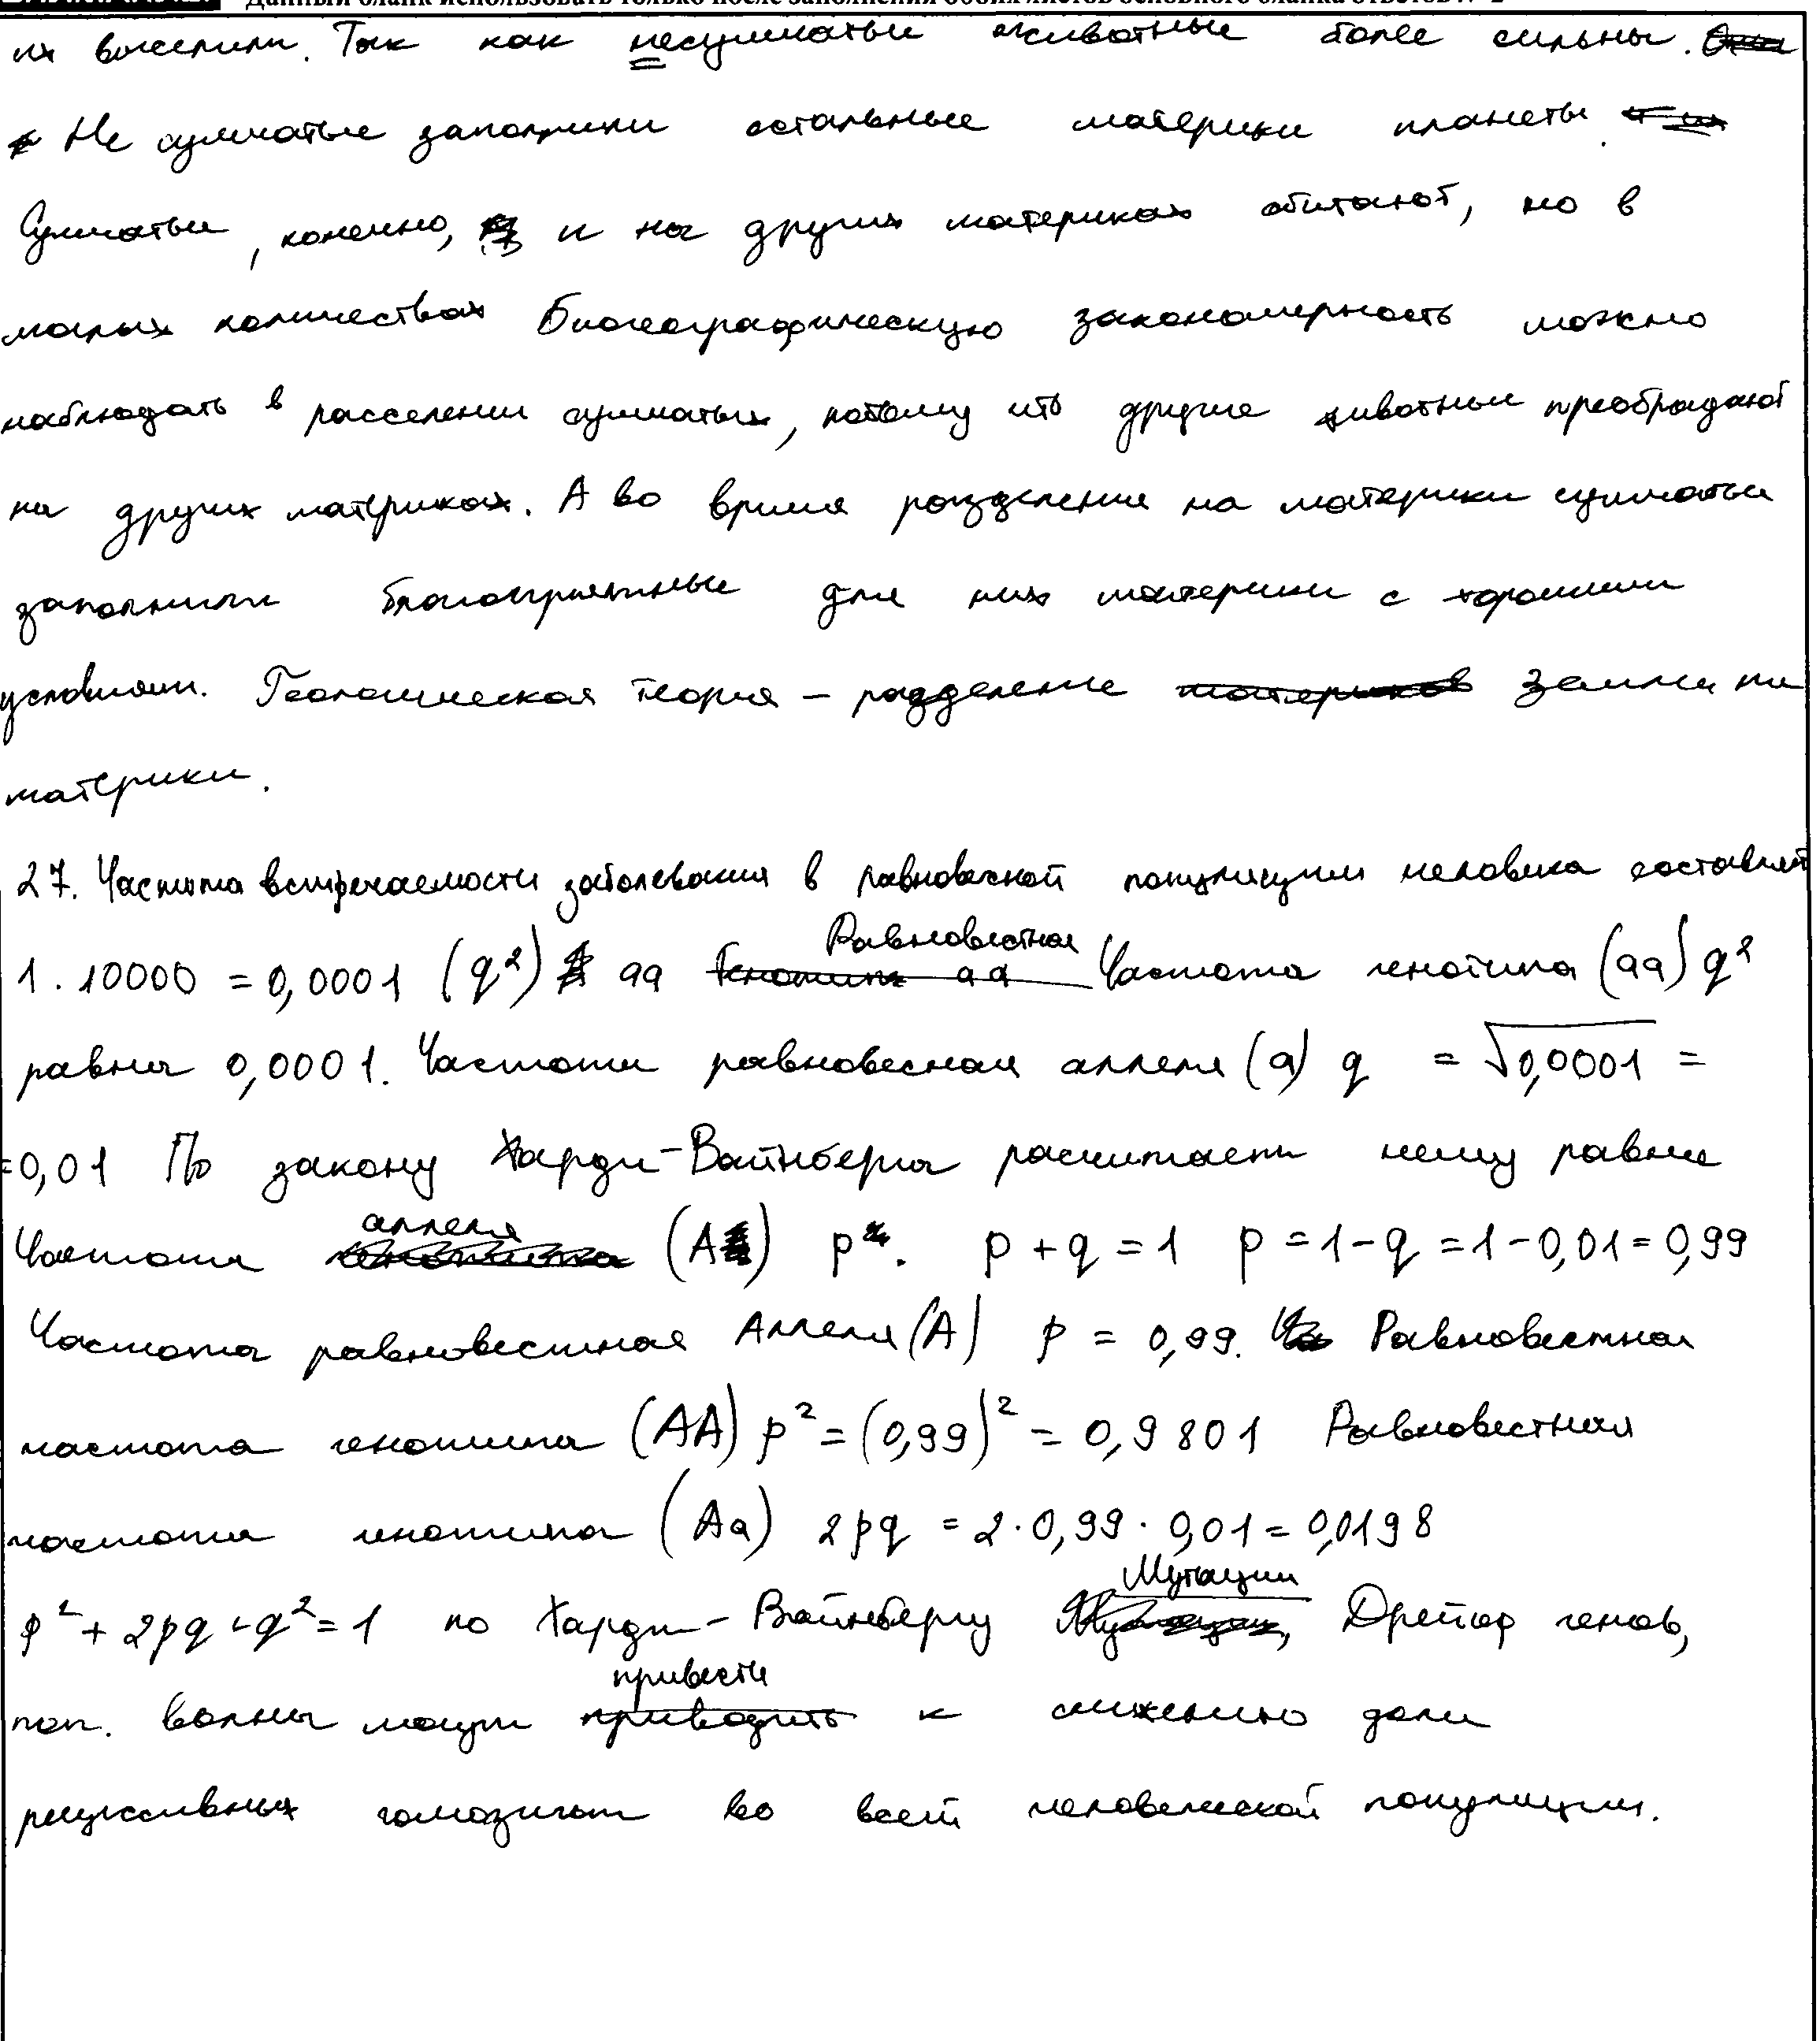 Данный бланк использовать только после заполнения обоих листов основного бланка ответов № 2
их выселили. Так как несумчатые животные более сильны.
Не сумчатые заполнили остальные материки планеты.
Сумчатые, конечно, и на других материках обитают, но в
малых количествах Биогеографическую закономерность можно
наблюдать в расселении сумчатых, потому что другие животные преобладают
на других материках. А во время разделения на материки сумчатые
заполнили благоприятные для них материки с хорошими
условиями. Геологическая теория – разделение материков Земли на
материки.
27. Частота встречаемости заболевания в равновесной популяции человека составляет
1 : 10000 = 0,0001 (q²) aa Генотип aa Равновестная Частота генотипа (aa) q²
равна 0,0001. Частота равновесная аллеля (a) q = √0,0001 =
=0,01 По закону Харди-Вайнберга расчитаем чему равна
Частота аллеля (A) p. p + q = 1 p = 1 - q = 1 - 0,01 = 0,99
Частота равновестная Аллеля (A) p = 0,99. Равновестная
частота генотипа (AA) p² = (0,99)² = 0,9801 Равновестная
частота генотипа (Aa) 2pq = 2·0,99·0,01 = 0,0198
p² + 2pq + q² = 1 по Харди-Вайнбергу Мутации, Дрейф генов,
поп. волны могут приводить привести к снижению доли
рецессивных гомозигот во всей человеческой популяции.